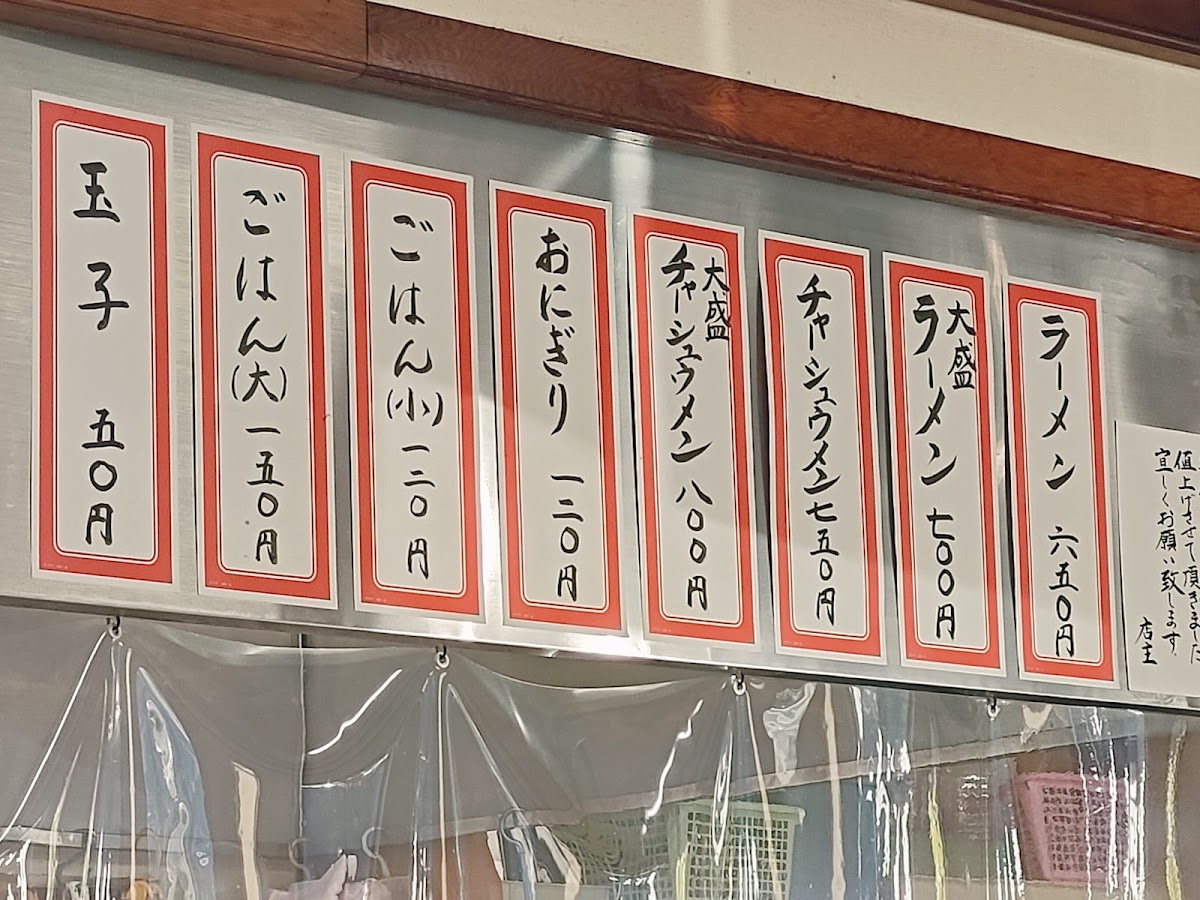 値上げさせて頂きました
宜しくお願い致します。
店主
ラーメン 六五〇円
大盛
ラーメン 七〇〇円
チャーシュウメン 七五〇円
大盛
チャーシュウメン 八〇〇円
おにぎり 一二〇円
ごはん(小) 一二〇円
ごはん(大) 一五〇円
玉子 五〇円